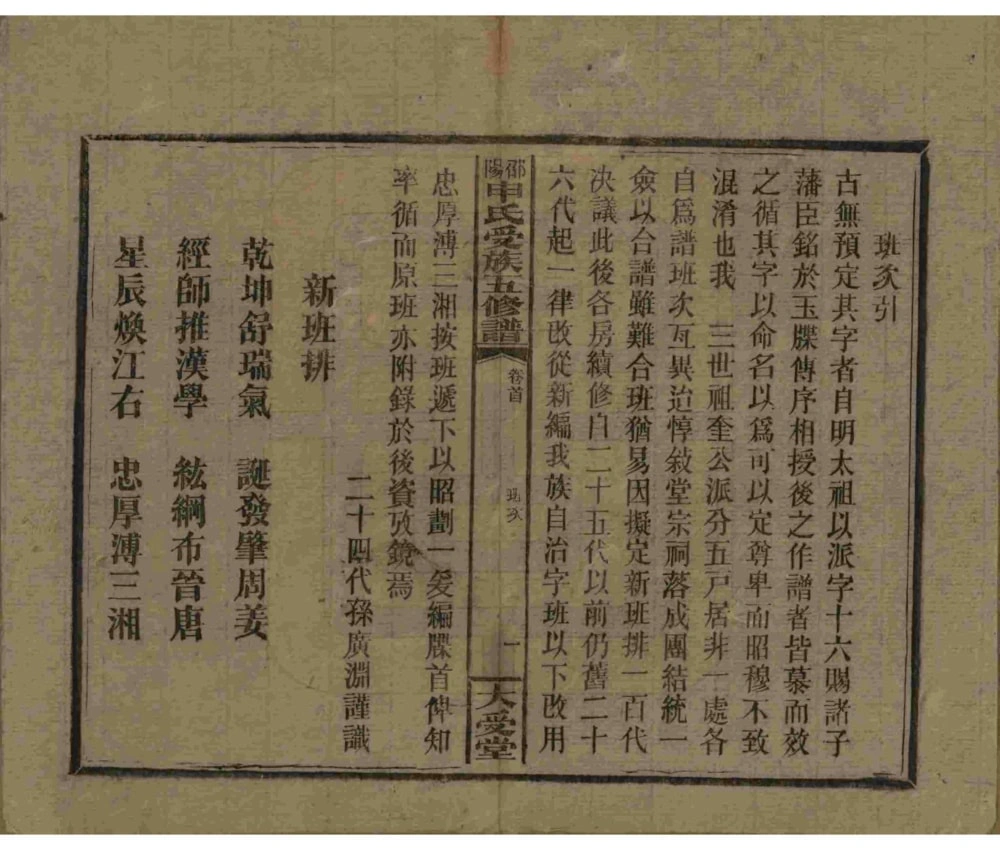 班次引
古無預定其字者自明太祖以派字十六賜諸子
藩臣銘於玉牒傳序相授後之作譜者皆慕而效
之循其字以命名以爲可以定尊卑而昭穆不致
混淆也我 三世祖奎公派分五戸居非一處各
自爲譜班次亙異迨惇敍堂宗祠落成團結統一
僉以合譜雖難合班猶易因擬定新班排一百代
决議此後各房續修自二十五代以前仍舊二十
六代起一律改從新編我族自治字班以下改用
邵陽申氏受族五修譜
卷首
班次
一
大受堂
忠厚溥三湘按班遞下以昭劃一爰編牒首俾知
率循而原班亦附錄於後資攷鏡焉
二十四代孫廣淵謹識
新班排
乾坤舒瑞氣 誕發肇周姜
經師推漢學 紘綱布晉唐
星辰煥江右 忠厚溥三湘